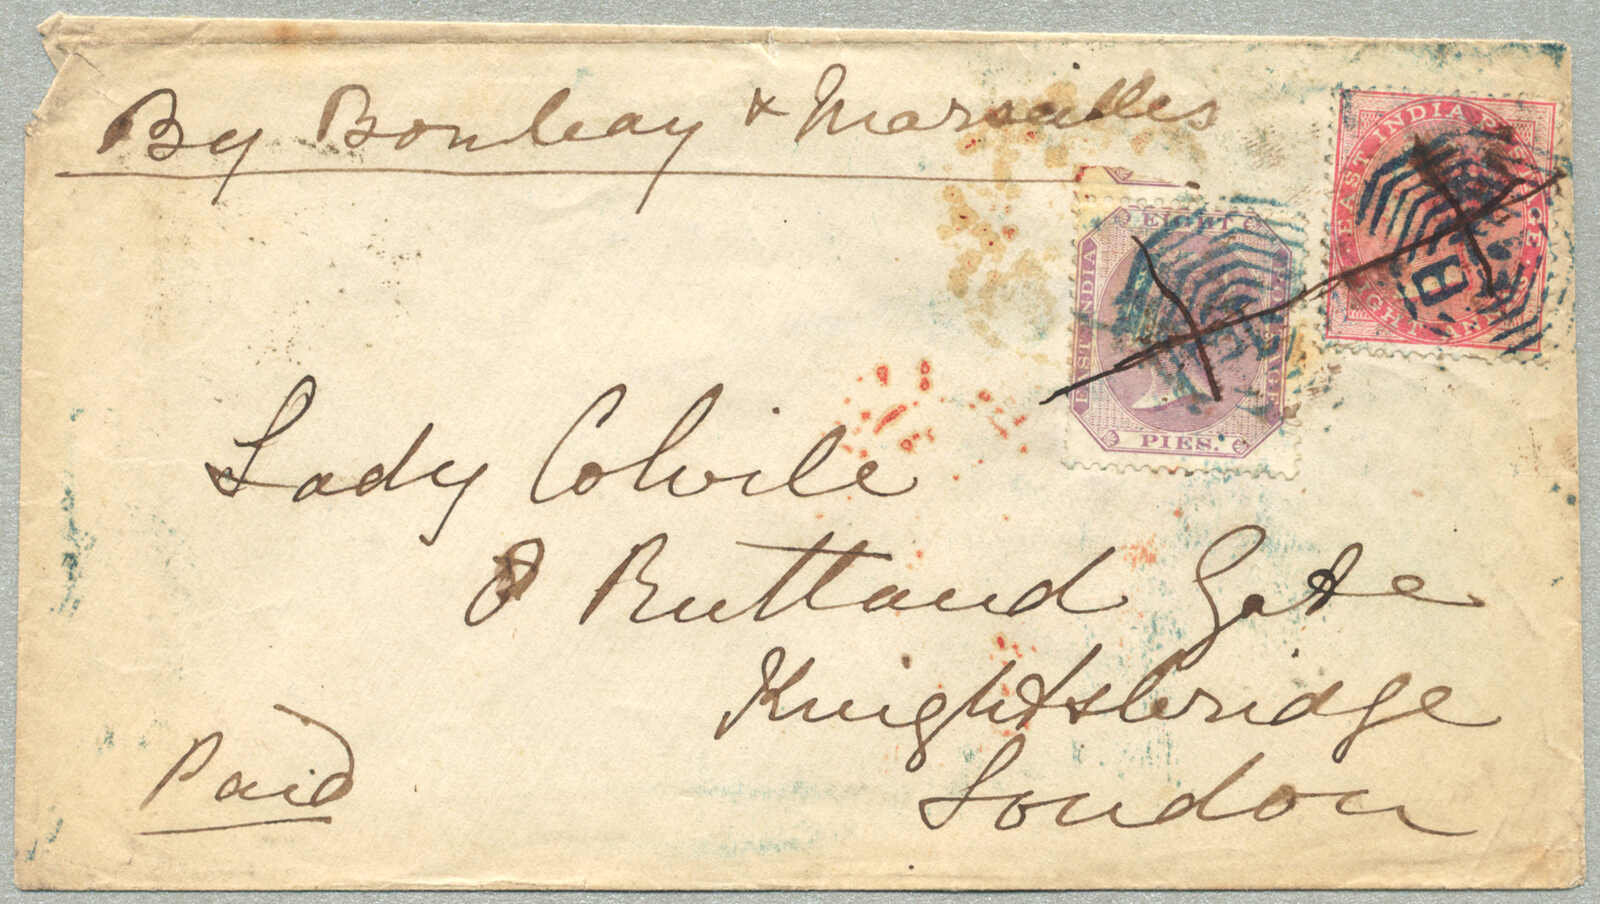 By Bombay & Marseilles
EAST INDIA POSTAGE
EIGHT ANNAS
B
EIGHT
EAST INDIA
POSTAGE
PIES.
Lady Colvile
8 Rutland Gate
Knightsbridge
London
Paid